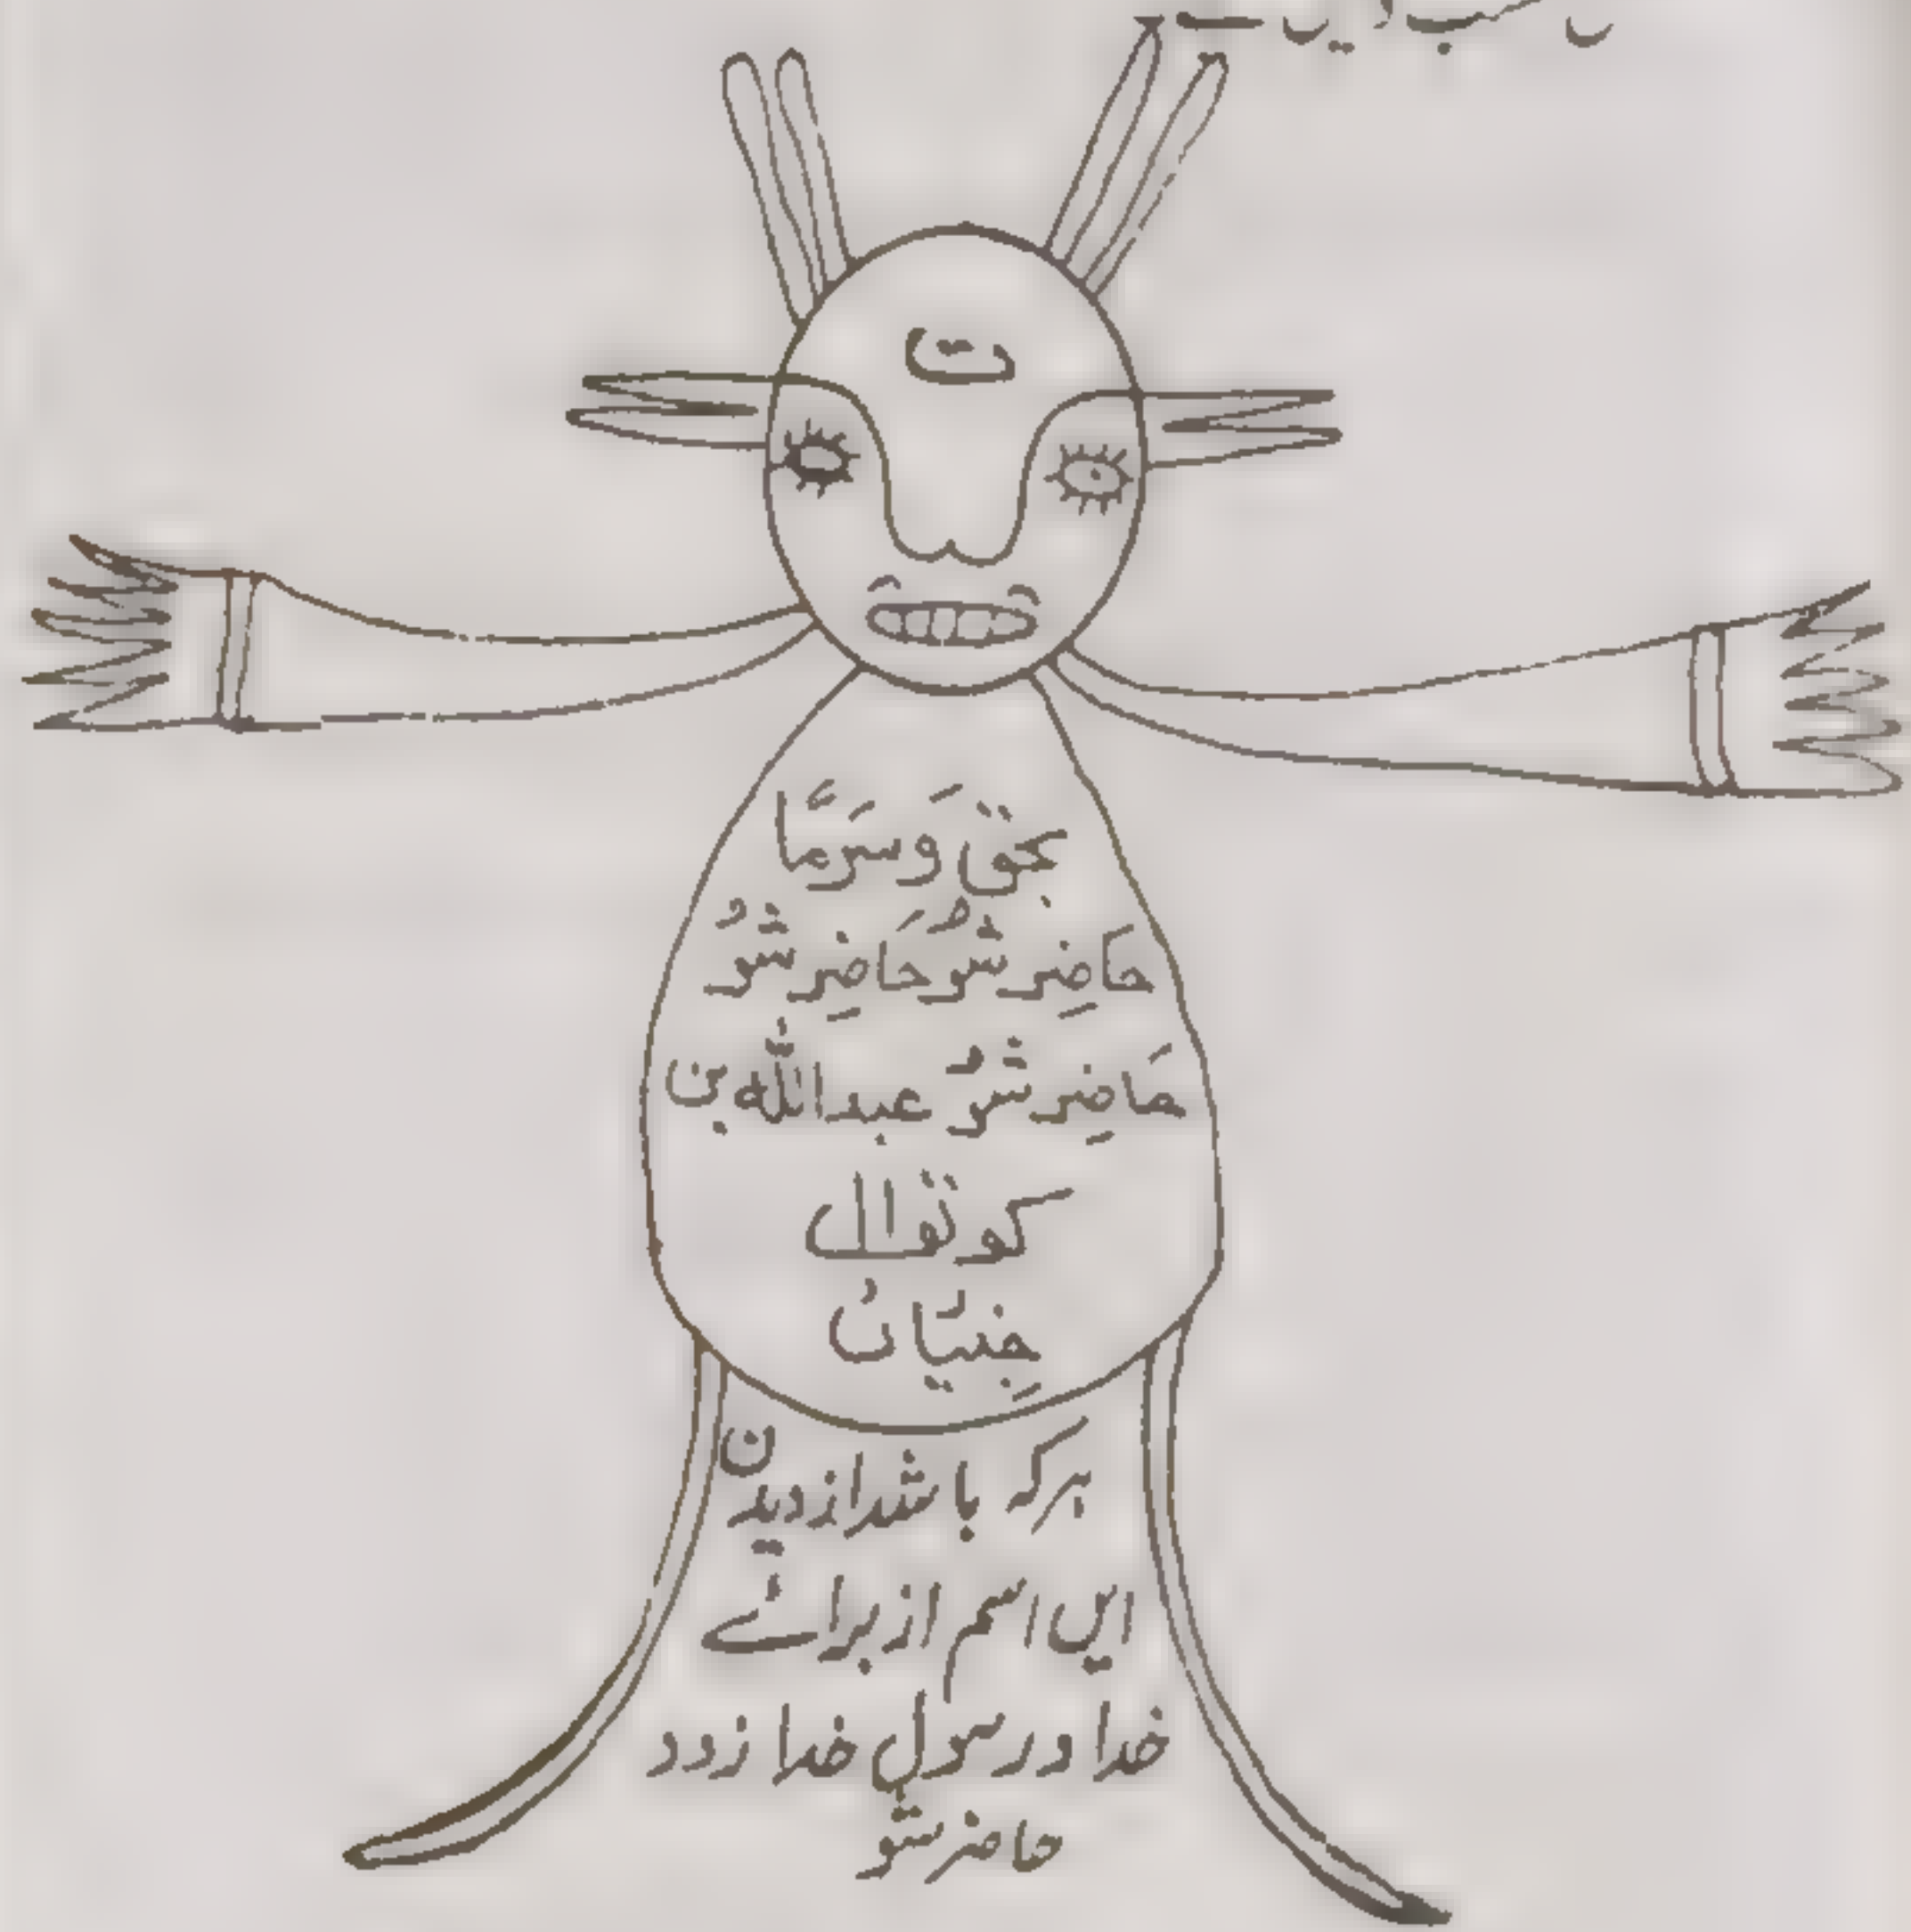 ت
بِحَقِّ وَسَرَمَا
حَاضِر شَوُ حَاضِر شَوُ
حَاضِر شَوُ عبداللّٰہ بن
کوتوال
جِنِّیَانُ
ہر کہ باشد از دیدن
ایں اسم از برائے
خدا و رسولِ خدا زود
حاضر شو